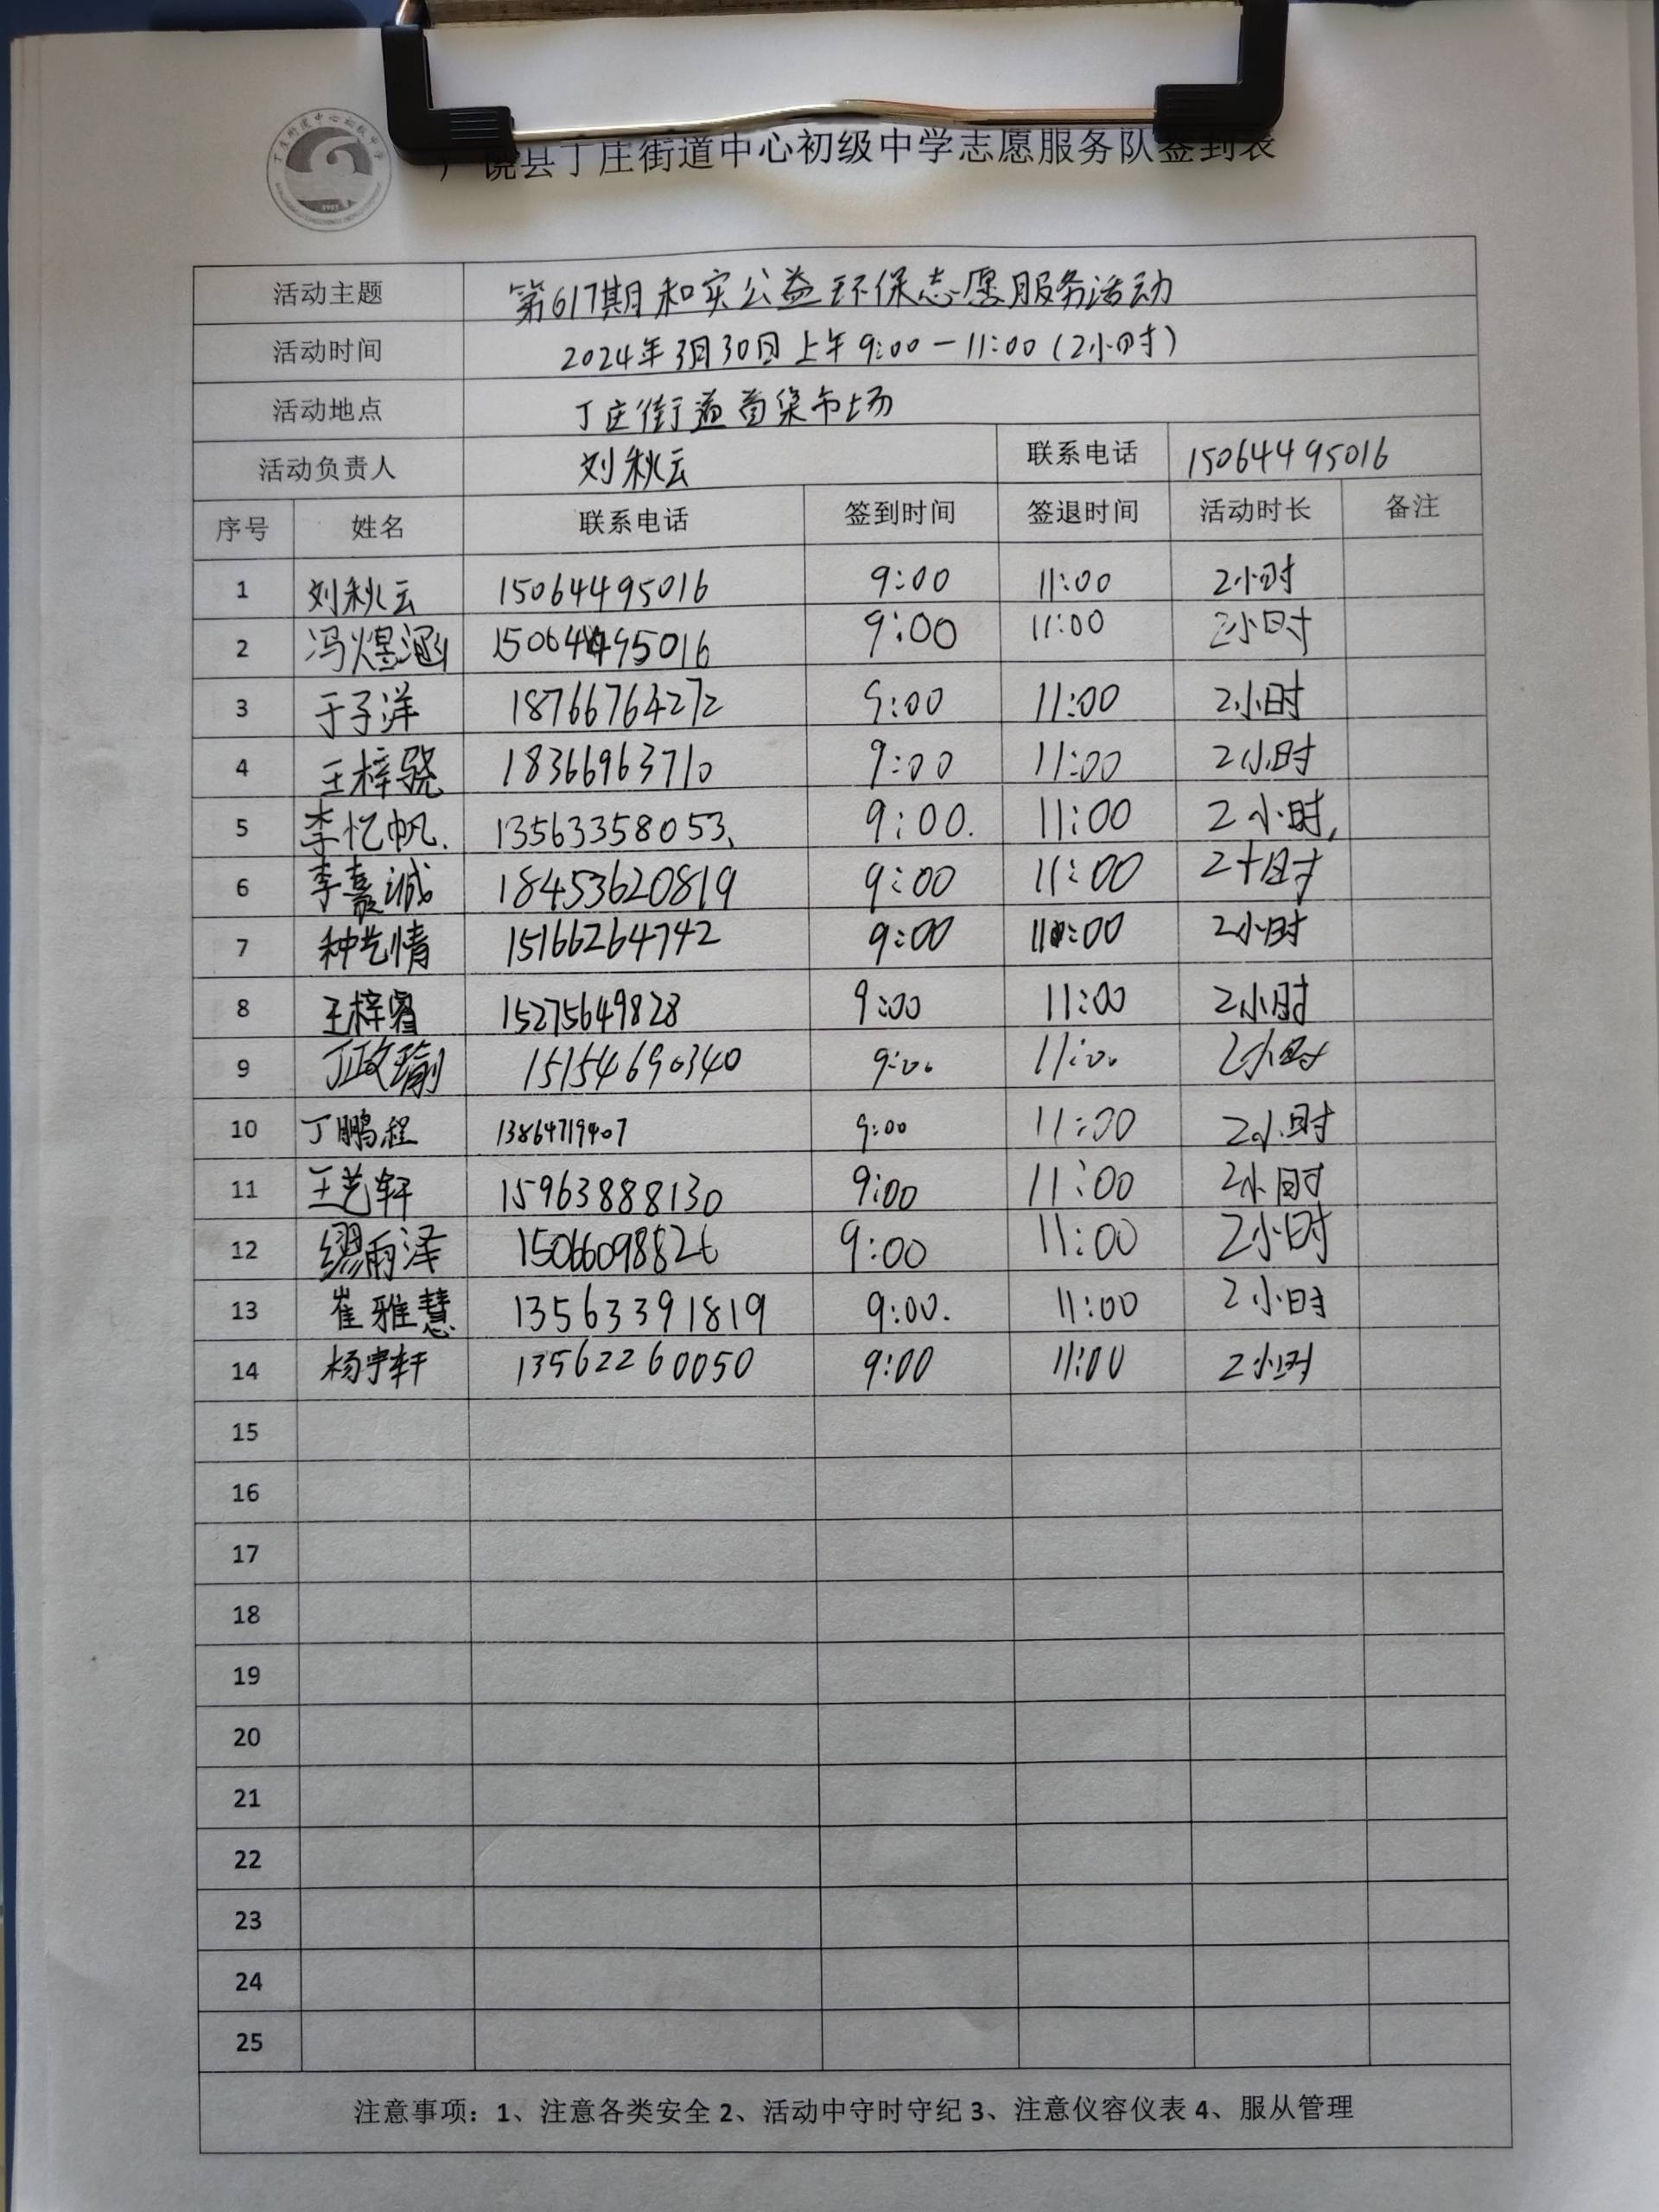 广饶县丁庄街道中心初级中学志愿服务队签到表
活动主题 第617期和实公益环保志愿服务活动
活动时间 2024年3月30日上午9:00－11:00(2小时)
活动地点 丁庄街道 集市场
活动负责人 刘秋云 联系电话 15064495016
序号 姓名 联系电话 签到时间 签退时间 活动时长 备注
1 刘秋云 15064495016 9:00 11:00 2小时
2 冯煜涵 15064495016 9:00 11:00 2小时
3 于子洋 18766764272 9:00 11:00 2小时
4 王梓骁 18366963710 9:00 11:00 2小时
5 李忆帆. 13563358053、 9:00. 11:00 2小时,
6 李 诚 18453620819 9:00 11:00 2小时
7 种艺情 15166264742 9:00 11:00 2小时
8 王梓睿 15275649828 9:00 11:00 2小时
9 丁政瑜 15154690340 9:00 11:00 2小时
10 丁鹏程 13864719407 9:00 11:00 2小时
11 王艺轩 15963888130 9:00 11:00 2小时
12 缪雨泽 15066098826 9:00 11:00 2小时
13 崔雅慧 13563391819 9:00. 11:00 2小时
14 杨宇轩 13562260050 9:00 11:00 2小时
15
16
17
18
19
20
21
22
23
24
25
注意事项：1、注意各类安全 2、活动中守时守纪 3、注意仪容仪表 4、服从管理